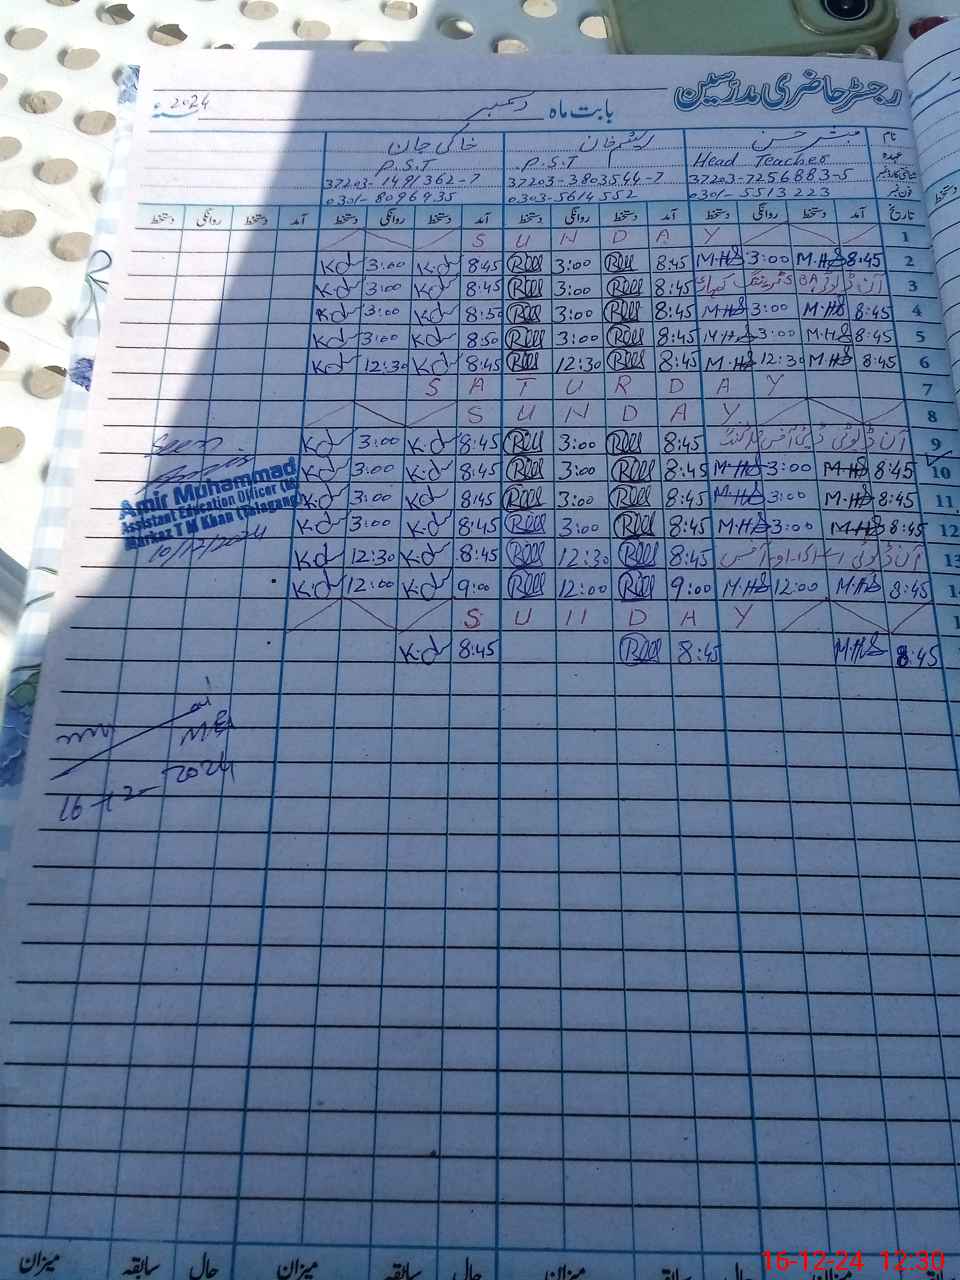 رجسٹر حاضری مدرسین
بابت ماہ دسمبر 2024ء
نام مبشر حسن ریشم خان خاکی جان
عہدہ Head Teacher P.S.T P.S.T
37203-7256883-5 37203-3803544-7 37203-1491362-7
0301-5513223 0303-5614552 0301-8096935
تاریخ آمد دستخط روانگی دستخط آمد دستخط روانگی دستخط آمد دستخط روانگی دستخط آمد دستخط روانگی دستخط
1 S U N D A Y
2 8:45 M.HS 3:00 M.HS 8:45 3:00 8:45 K.d 3:00 K.d
3 8:45 3:00 8:45 K.d 3:00 K.d
4 8:45 M.HS 3:00 M.HS 8:45 3:00 8:50 K.d 3:00 K.d
5 8:45 M.HS 3:00 M.HS 8:45 3:00 8:50 K.d 3:00 K.d
6 8:45 M.HS 12:30 M.HS 8:45 12:30 8:45 K.d 12:30 K.d
7 S A T U R D A Y
8 S U N D A Y
9 آن ڈیوٹی 8:45 3:00 8:45 K.d 3:00 K.d
10 8:45 M.HS 3:00 M.HS 8:45 3:00 8:45 K.d 3:00 K.d
11 8:45 M.HS 3:00 M.HS 8:45 3:00 8:45 K.d 3:00 K.d
12 8:45 M.HS 3:00 M.HS 8:45 3:00 8:45 K.d 3:00 K.d
13 آن ڈیوٹی 8:45 12:30 8:45 K.d 12:30 K.d
8:45 M.HS 12:00 M.HS 9:00 12:00 9:00 K.d 12:00 K.d
S U N D A Y
8:45 M.HS 8:45 8:45 K.d
Seen
Amir Muhammad
Assistant Education Officer (M)
Markaz T M Khan (Talagang)
10/12/2024
16-12-2024
میزان سابقہ حال میزان سابقہ حال میزان سابقہ حال
16-12-24 12:30